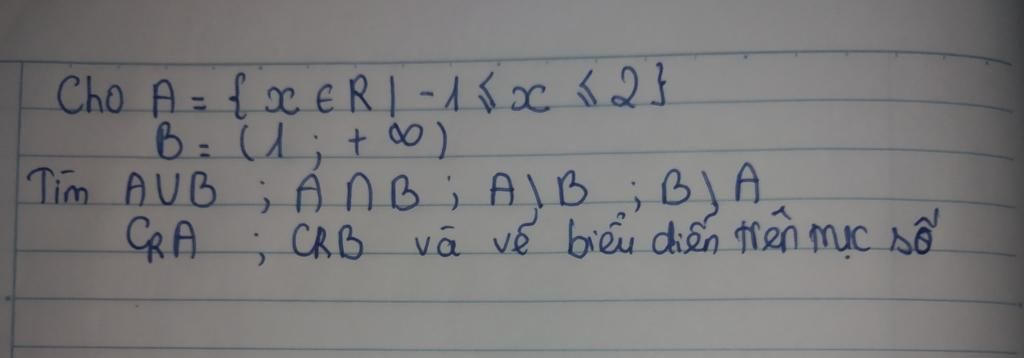 Cho A = { x ∈ R | -1 ⩽ x ⩽ 2}
B = (1 ; + ∞)
Tìm A ∪ B ; A ∩ B ; A \ B ; B \ A
CRA ; CRB và vẽ biểu diễn trên mục số